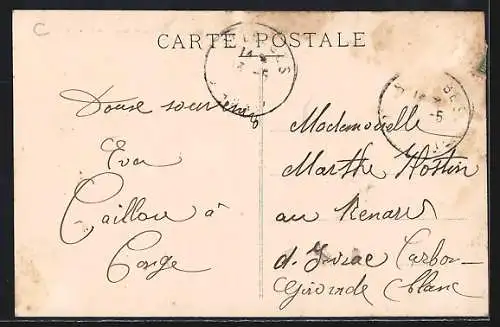 C
CARTE POSTALE
Douse souvenir
Eva
Caillou à
Mademoiselle
Marthe Hostin
au Renard
d. Yvrac Carbon-
Gironde blanc